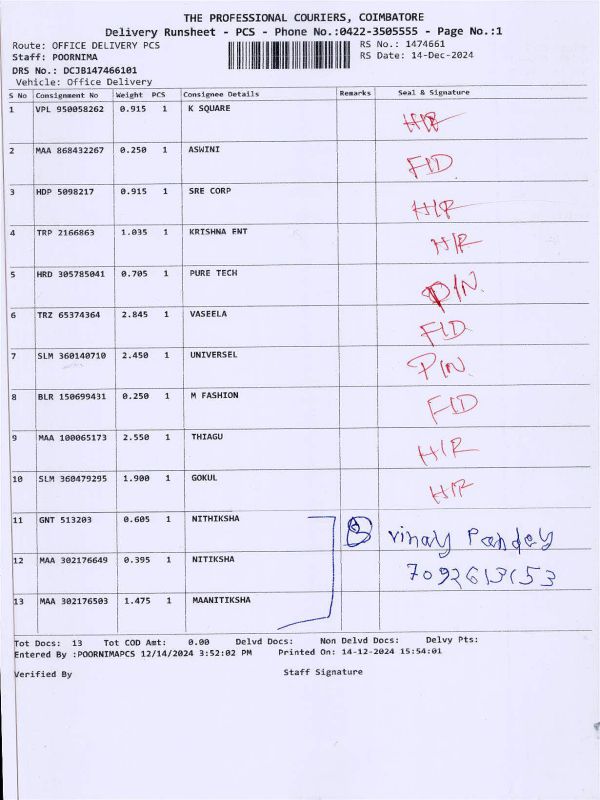 THE PROFESSIONAL COURIERS, COIMBATORE
Delivery Runsheet - PCS - Phone No.:0422-3505555 - Page No.:1
Route: OFFICE DELIVERY PCS RS No.: 1474661
Staff: POORNIMA RS Date: 14-Dec-2024
DRS No.: DCJB147466101
Vehicle: Office Delivery
S No Consignment No Weight PCS Consignee Details Remarks Seal & Signature
1 VPL 950058262 0.915 1 K SQUARE H/R
2 MAA 868432267 0.250 1 ASWINI F/D
3 HDP 5098217 0.915 1 SRE CORP H/R
4 TRP 2166863 1.035 1 KRISHNA ENT H/R
5 HRD 305785041 0.705 1 PURE TECH P/N.
6 TRZ 65374364 2.845 1 VASEELA F/D
7 SLM 360140710 2.450 1 UNIVERSEL P/N.
8 BLR 150699431 0.250 1 M FASHION F/D
9 MAA 100065173 2.550 1 THIAGU H/R
10 SLM 360479295 1.900 1 GOKUL H/R
11 GNT 513203 0.605 1 NITHIKSHA 3 vinay Pandey
12 MAA 302176649 0.395 1 NITIKSHA 7092613153
13 MAA 302176503 1.475 1 MAANITIKSHA
Tot Docs: 13 Tot COD Amt: 0.00 Delvd Docs: Non Delvd Docs: Delvy Pts:
Entered By :POORNIMAPCS 12/14/2024 3:52:02 PM Printed On: 14-12-2024 15:54:01
Verified By Staff Signature